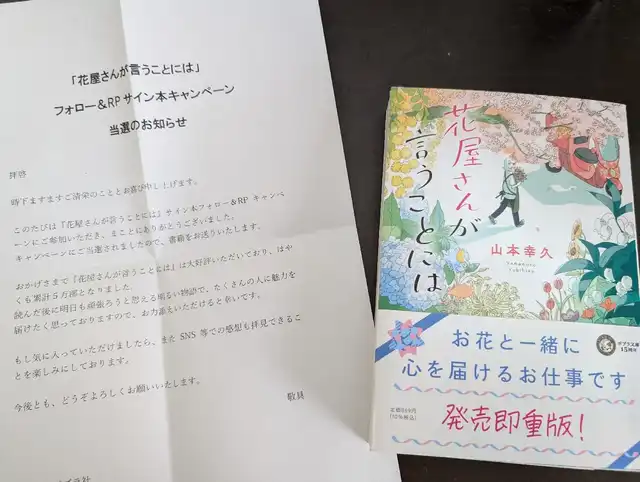 「花屋さんが言うことには」
フォロー&RPサイン本キャンペーン
当選のお知らせ
拝啓
時下ますますご清栄のこととお喜び申し上げます。
このたびは『花屋さんが言うことには』サイン本フォロー&RP キャンペ
ーンにご参加いただき、まことにありがとうございました。
キャンペーンにご当選されましたので、書籍をお送りいたします。
おかげさまで『花屋さんが言うことには』は大好評いただいており、はや
くも累計5万部となりました。
読んだ後に明日も頑張ろうと思える明るい物語で、たくさんの人に魅力を
届けたく思っておりますので、お力添えいただけると幸いです。
もし気に入っていただけましたら、また SNS 等での感想も拝見できるこ
とを楽しみにしております。
今後とも、どうぞよろしくお願いいたします。
敬具
花屋さんが
言うことには
山本幸久
Yamamoto
Yukihisa
お花と一緒に
心を届けるお仕事です
ポプラ文庫
15周年
発売即重版!